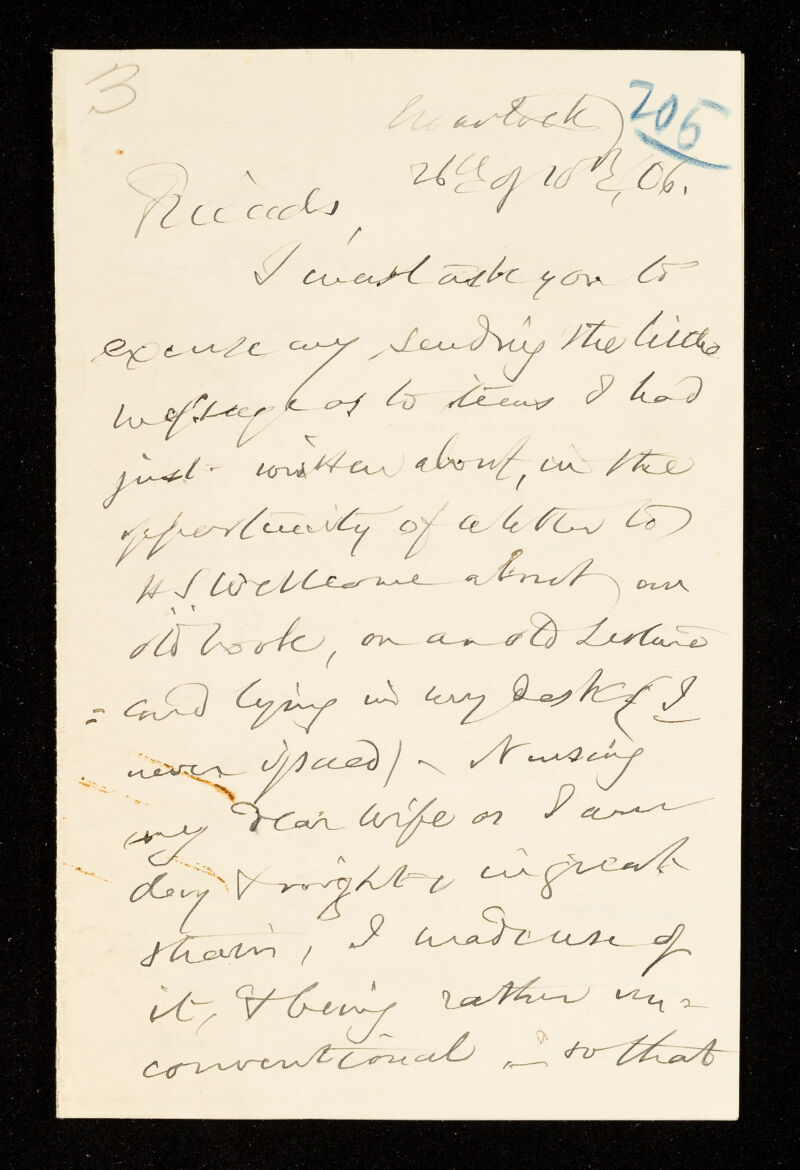 3
205
26th of 10th, 06.
Friends,
I must ask you to
excuse my sending the little
message as to items I had
just written about, in the
opportunity of a letter to
H S Wellcome about an
old book, on an old Lecture
= card lying in my desk (I
never issued) - Nursing
my dear wife as I am
day & night, in great
strain, I made use of
it, & being rather un-
conventional - so that